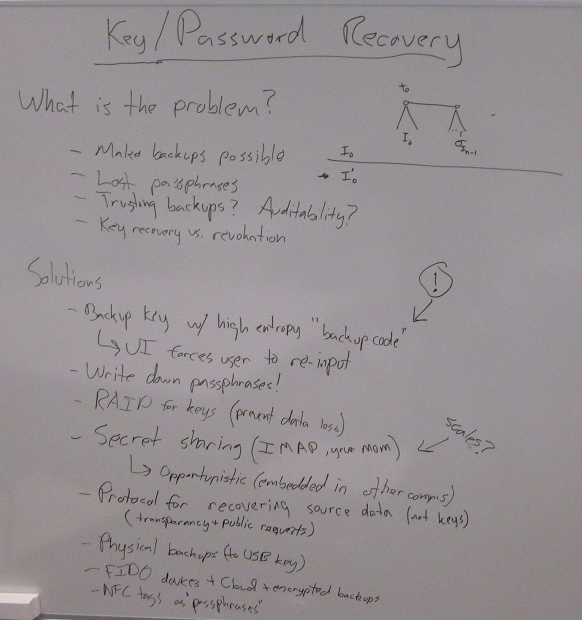 Key/Password Recovery
What is the problem?
- Make backups possible
- Lost passphrases
- Trusting backups? Auditability?
- Key recovery vs. revokation
t₀
I₀
I₀
→ I₀'
Solutions
!
- Backup key w/ high entropy "backup code"
↳ UI forces user to re-input
- Write down passphrases!
- RAID for keys (prevent data loss)
- Secret sharing (IMAP, your mom)
scales?
↳ Opportunistic (embedded in other comms)
- Protocol for recovering source data (not keys)
(transparency + public requests)
- Physical backups (to USB key)
- FIDO devices + Cloud + encrypted backups
- NFC tags as "passphrases"